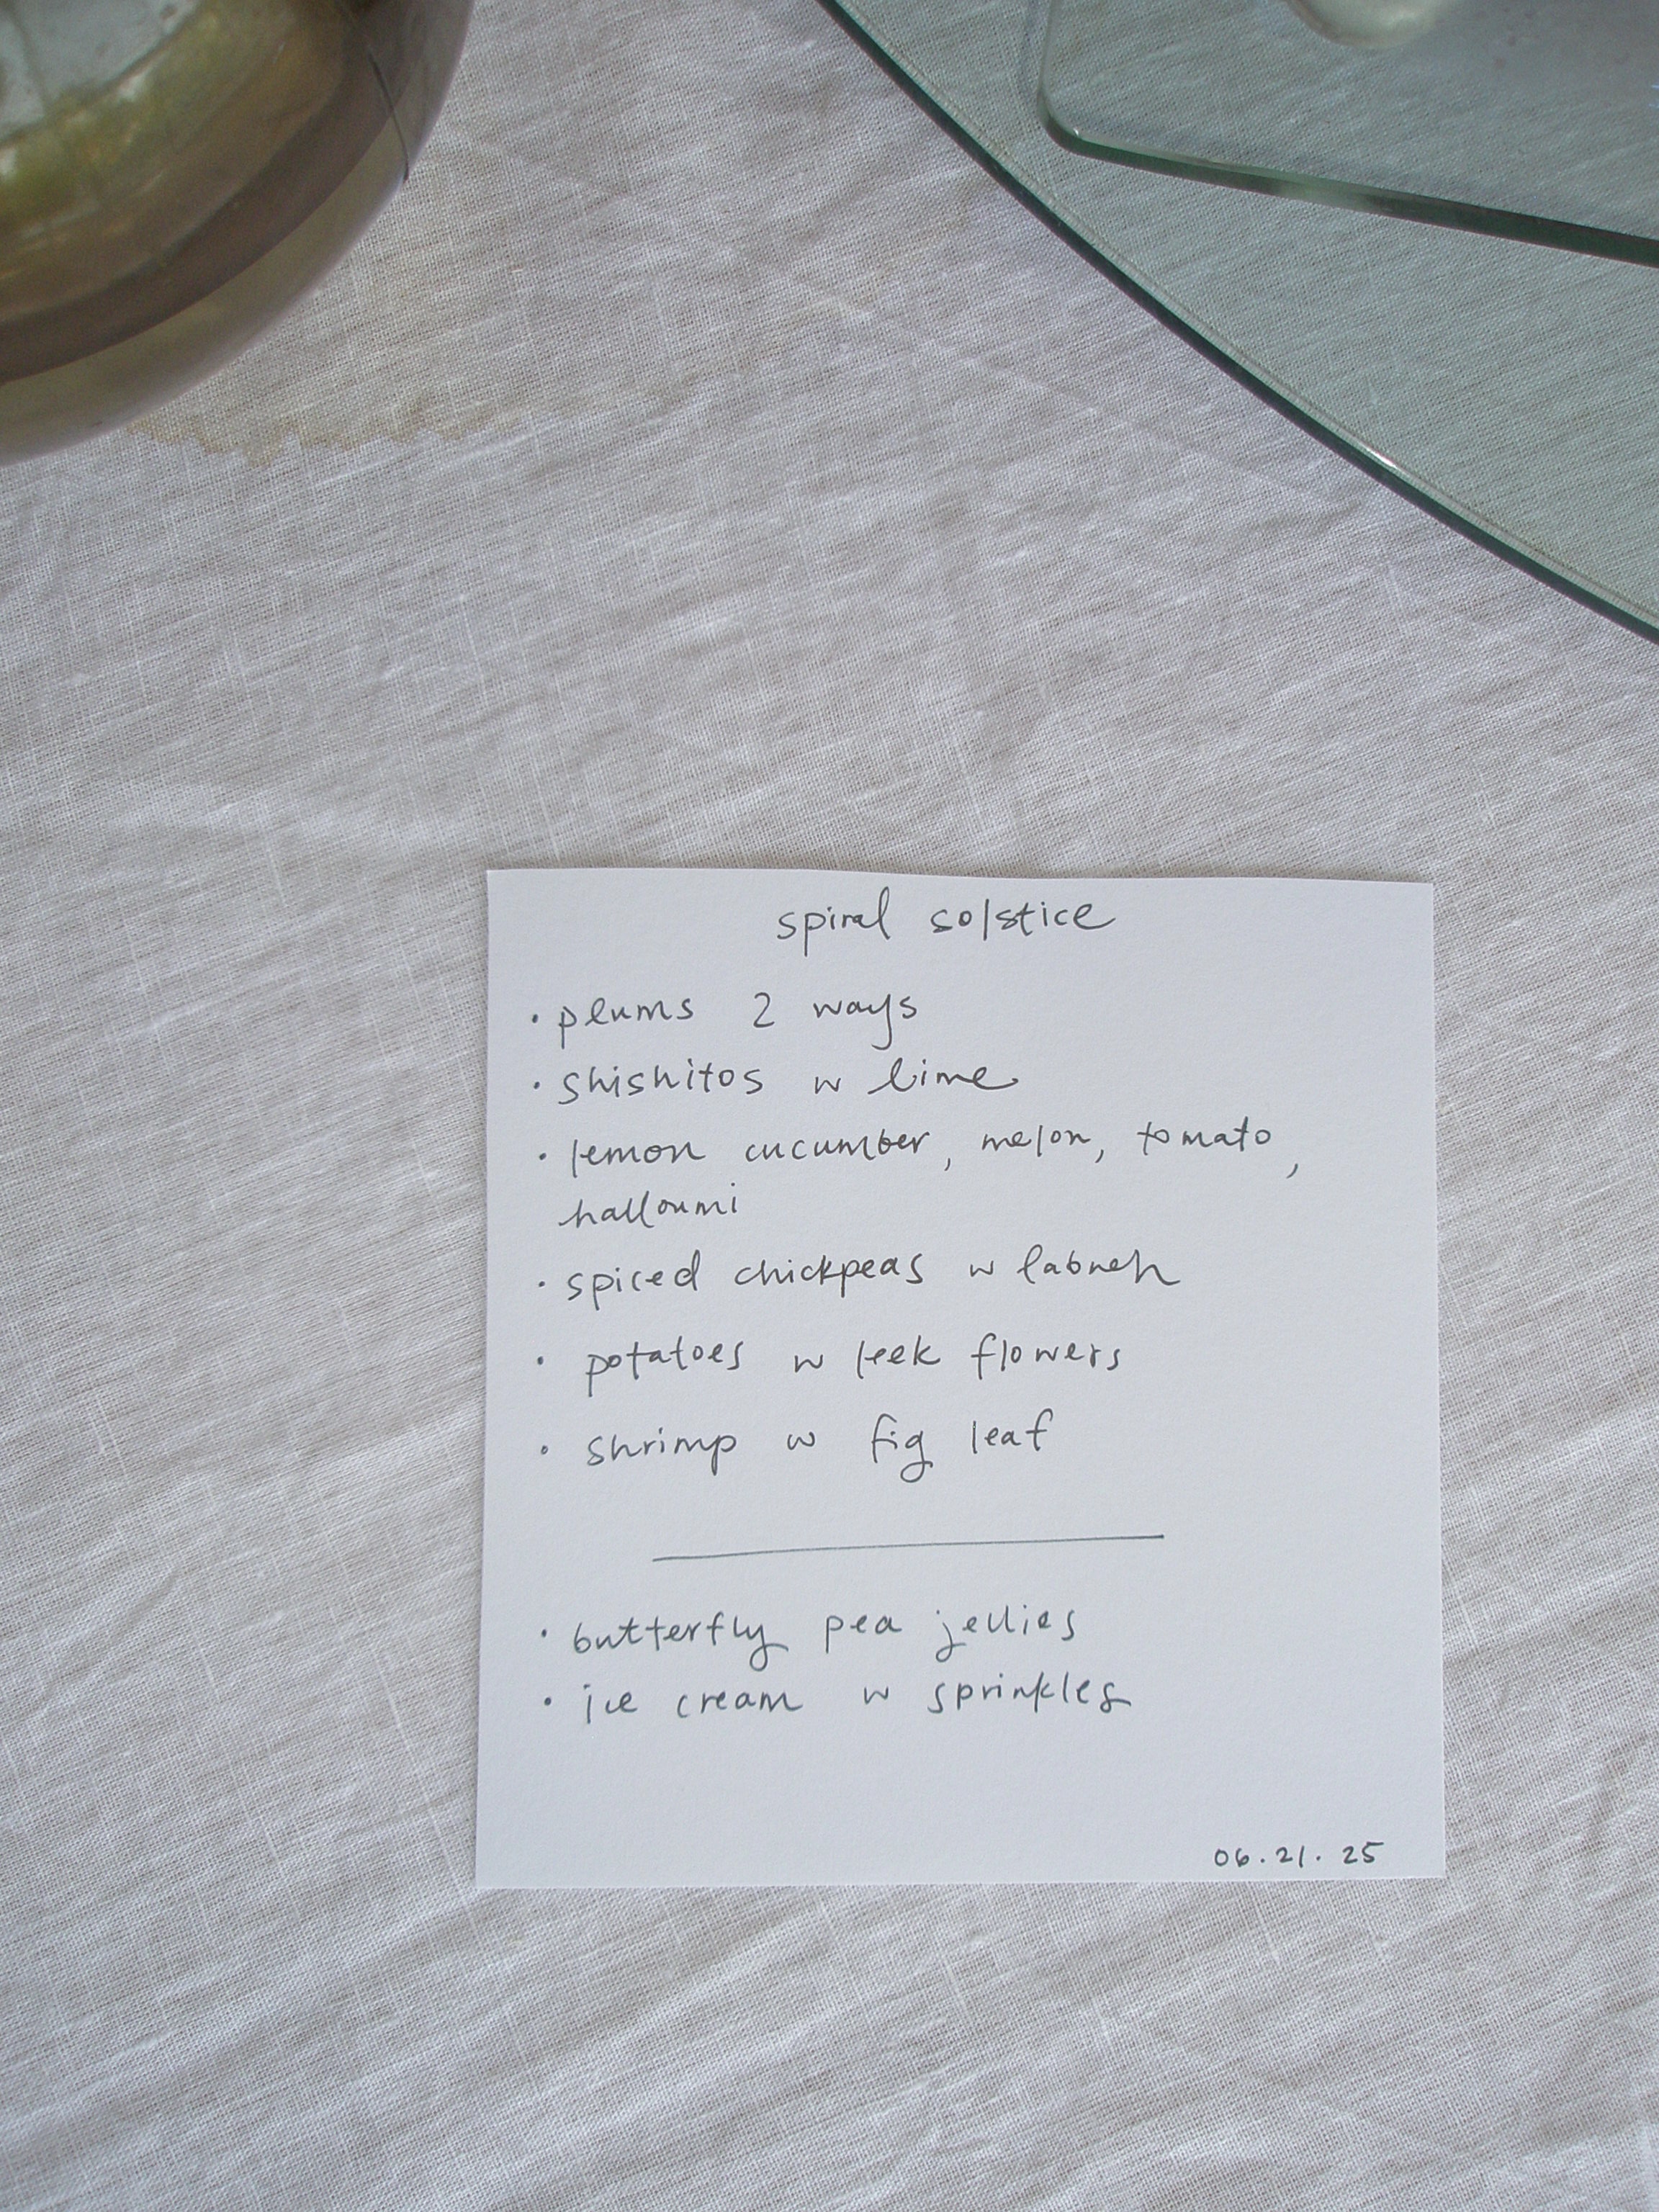 spiral solstice
• plums 2 ways
• shishitos w lime
• lemon cucumber, melon, tomato,
halloumi
• spiced chickpeas w labneh
• potatoes w leek flowers
• shrimp w fig leaf
• butterfly pea jellies
• ice cream w sprinkles
06.21.25